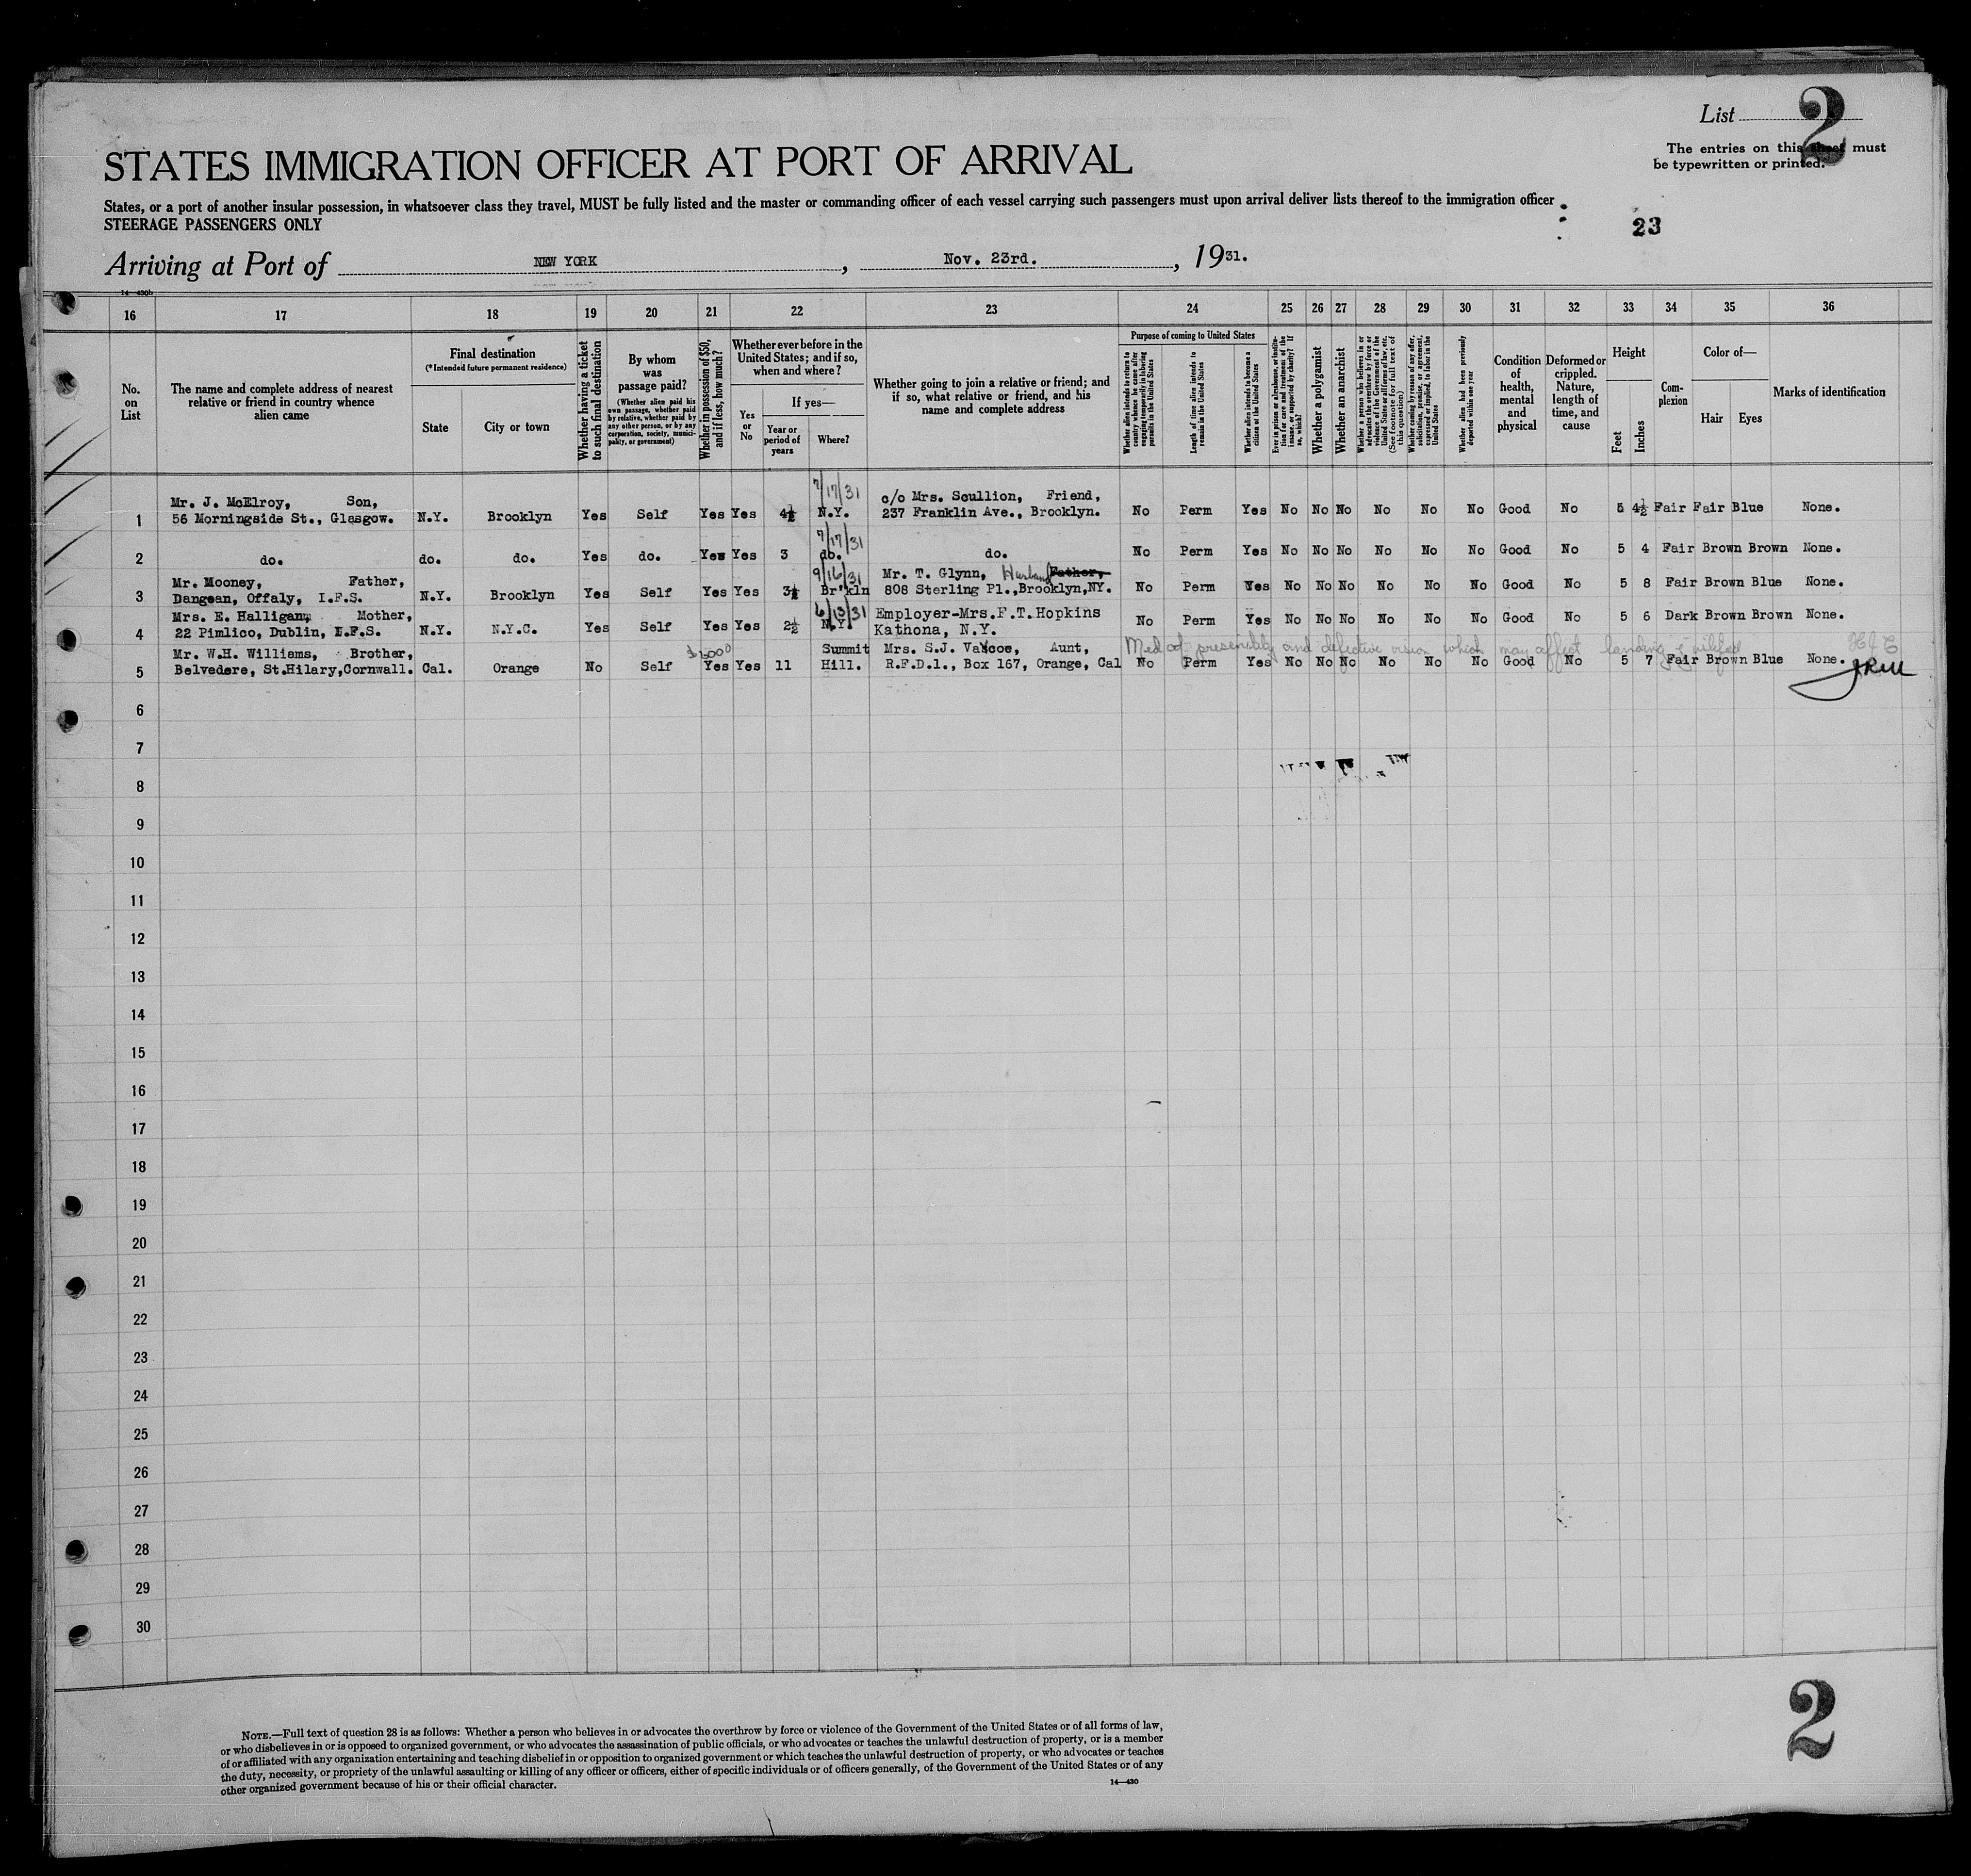 List 2
The entries on this sheet must
be typewritten or printed.
STATES IMMIGRATION OFFICER AT PORT OF ARRIVAL
States, or a port of another insular possession, in whatsoever class they travel, MUST be fully listed and the master or commanding officer of each vessel carrying such passengers must upon arrival deliver lists thereof to the immigration officer
STEERAGE PASSENGERS ONLY
23
Arriving at Port of NEW YORK, Nov. 23rd., 1931.
14—430b
16 17 18 19 20 21 22 23 24 25 26 27 28 29 30 31 32 33 34 35 36
No. on List
The name and complete address of nearest relative or friend in country whence alien came
Final destination
(*Intended future permanent residence)
State
City or town
Whether having a ticket to such final destination
By whom was passage paid?
(Whether alien paid his own passage, whether paid by relative, whether paid by any other person, or by any corporation, society, municipality, or government)
Whether in possession of $50, and if less, how much?
Whether ever before in the United States; and if so, when and where?
Yes or No
If yes—
Year or period of years
Where?
Whether going to join a relative or friend; and if so, what relative or friend, and his name and complete address
Purpose of coming to United States
Whether alien intends to return to country whence he came after engaging temporarily in laboring pursuits in the United States
Length of time alien intends to remain in the United States
Whether alien intends to become a citizen of the United States
Ever in prison or almshouse, or institution for care and treatment of the insane, or supported by charity? If so, which?
Whether a polygamist
Whether an anarchist
Whether a person who believes in or advocates the overthrow by force or violence of the Government of the United States or all forms of law, etc. (See footnote for full text of this question)
Whether coming by reason of any offer, solicitation, promise, or agreement, expressed or implied, to labor in the United States
Whether alien had been previously deported within one year
Condition of health, mental and physical
Deformed or crippled. Nature, length of time, and cause
Height
Feet
Inches
Complexion
Color of—
Hair
Eyes
Marks of identification
7/17/31
Mr. J. McElroy, Son, c/o Mrs. Scullion, Friend,
1 56 Morningside St., Glasgow. N.Y. Brooklyn Yes Self Yes Yes 4½ N.Y. 237 Franklin Ave., Brooklyn. No Perm Yes No No No No No No Good No 5 4½ Fair Fair Blue None.
7/17/31
2 do. do. do. Yes do. Yes Yes 3 do. do. No Perm Yes No No No No No No Good No 5 4 Fair Brown Brown None.
Mr. Mooney, Father, 9/16/31 Mr. T. Glynn, Husband Father,
3 Dangean, Offaly, I.F.S. N.Y. Brooklyn Yes Self Yes Yes 3½ Br'kln 808 Sterling Pl.,Brooklyn,NY. No Perm Yes No No No No No No Good No 5 8 Fair Brown Blue None.
Mrs. E. Halligan, Mother, 6/13/31 Employer-Mrs.F.T.Hopkins
4 22 Pimlico, Dublin, I.F.S. N.Y. N.Y.C. Yes Self Yes Yes 2½ N.Y. Kathona, N.Y. No Perm Yes No No No No No No Good No 5 6 Dark Brown Brown None.
Mr. W.H. Williams, Brother, Summit Mrs. S.J. Vascoe, Aunt, Med and defective vision which may affect landing
5 Belvedere, St.Hilary,Cornwall. Cal. Orange No Self Yes Yes 11 Hill. R.F.D.1., Box 167, Orange, Cal No Perm Yes No No No No No No Good No 5 7 Fair Brown Blue None.
6
7
8
9
10
11
12
13
14
15
16
17
18
19
20
21
22
23
24
25
26
27
28
29
30
NOTE.—Full text of question 28 is as follows: Whether a person who believes in or advocates the overthrow by force or violence of the Government of the United States or of all forms of law,
or who disbelieves in or is opposed to organized government, or who advocates the assassination of public officials, or who advocates or teaches the unlawful destruction of property, or is a member
of or affiliated with any organization entertaining and teaching disbelief in or opposition to organized government or which teaches the unlawful destruction of property, or who advocates or teaches
the duty, necessity, or propriety of the unlawful assaulting or killing of any officer or officers, either of specific individuals or of officers generally, of the Government of the United States or of any
other organized government because of his or their official character.
14—430
2